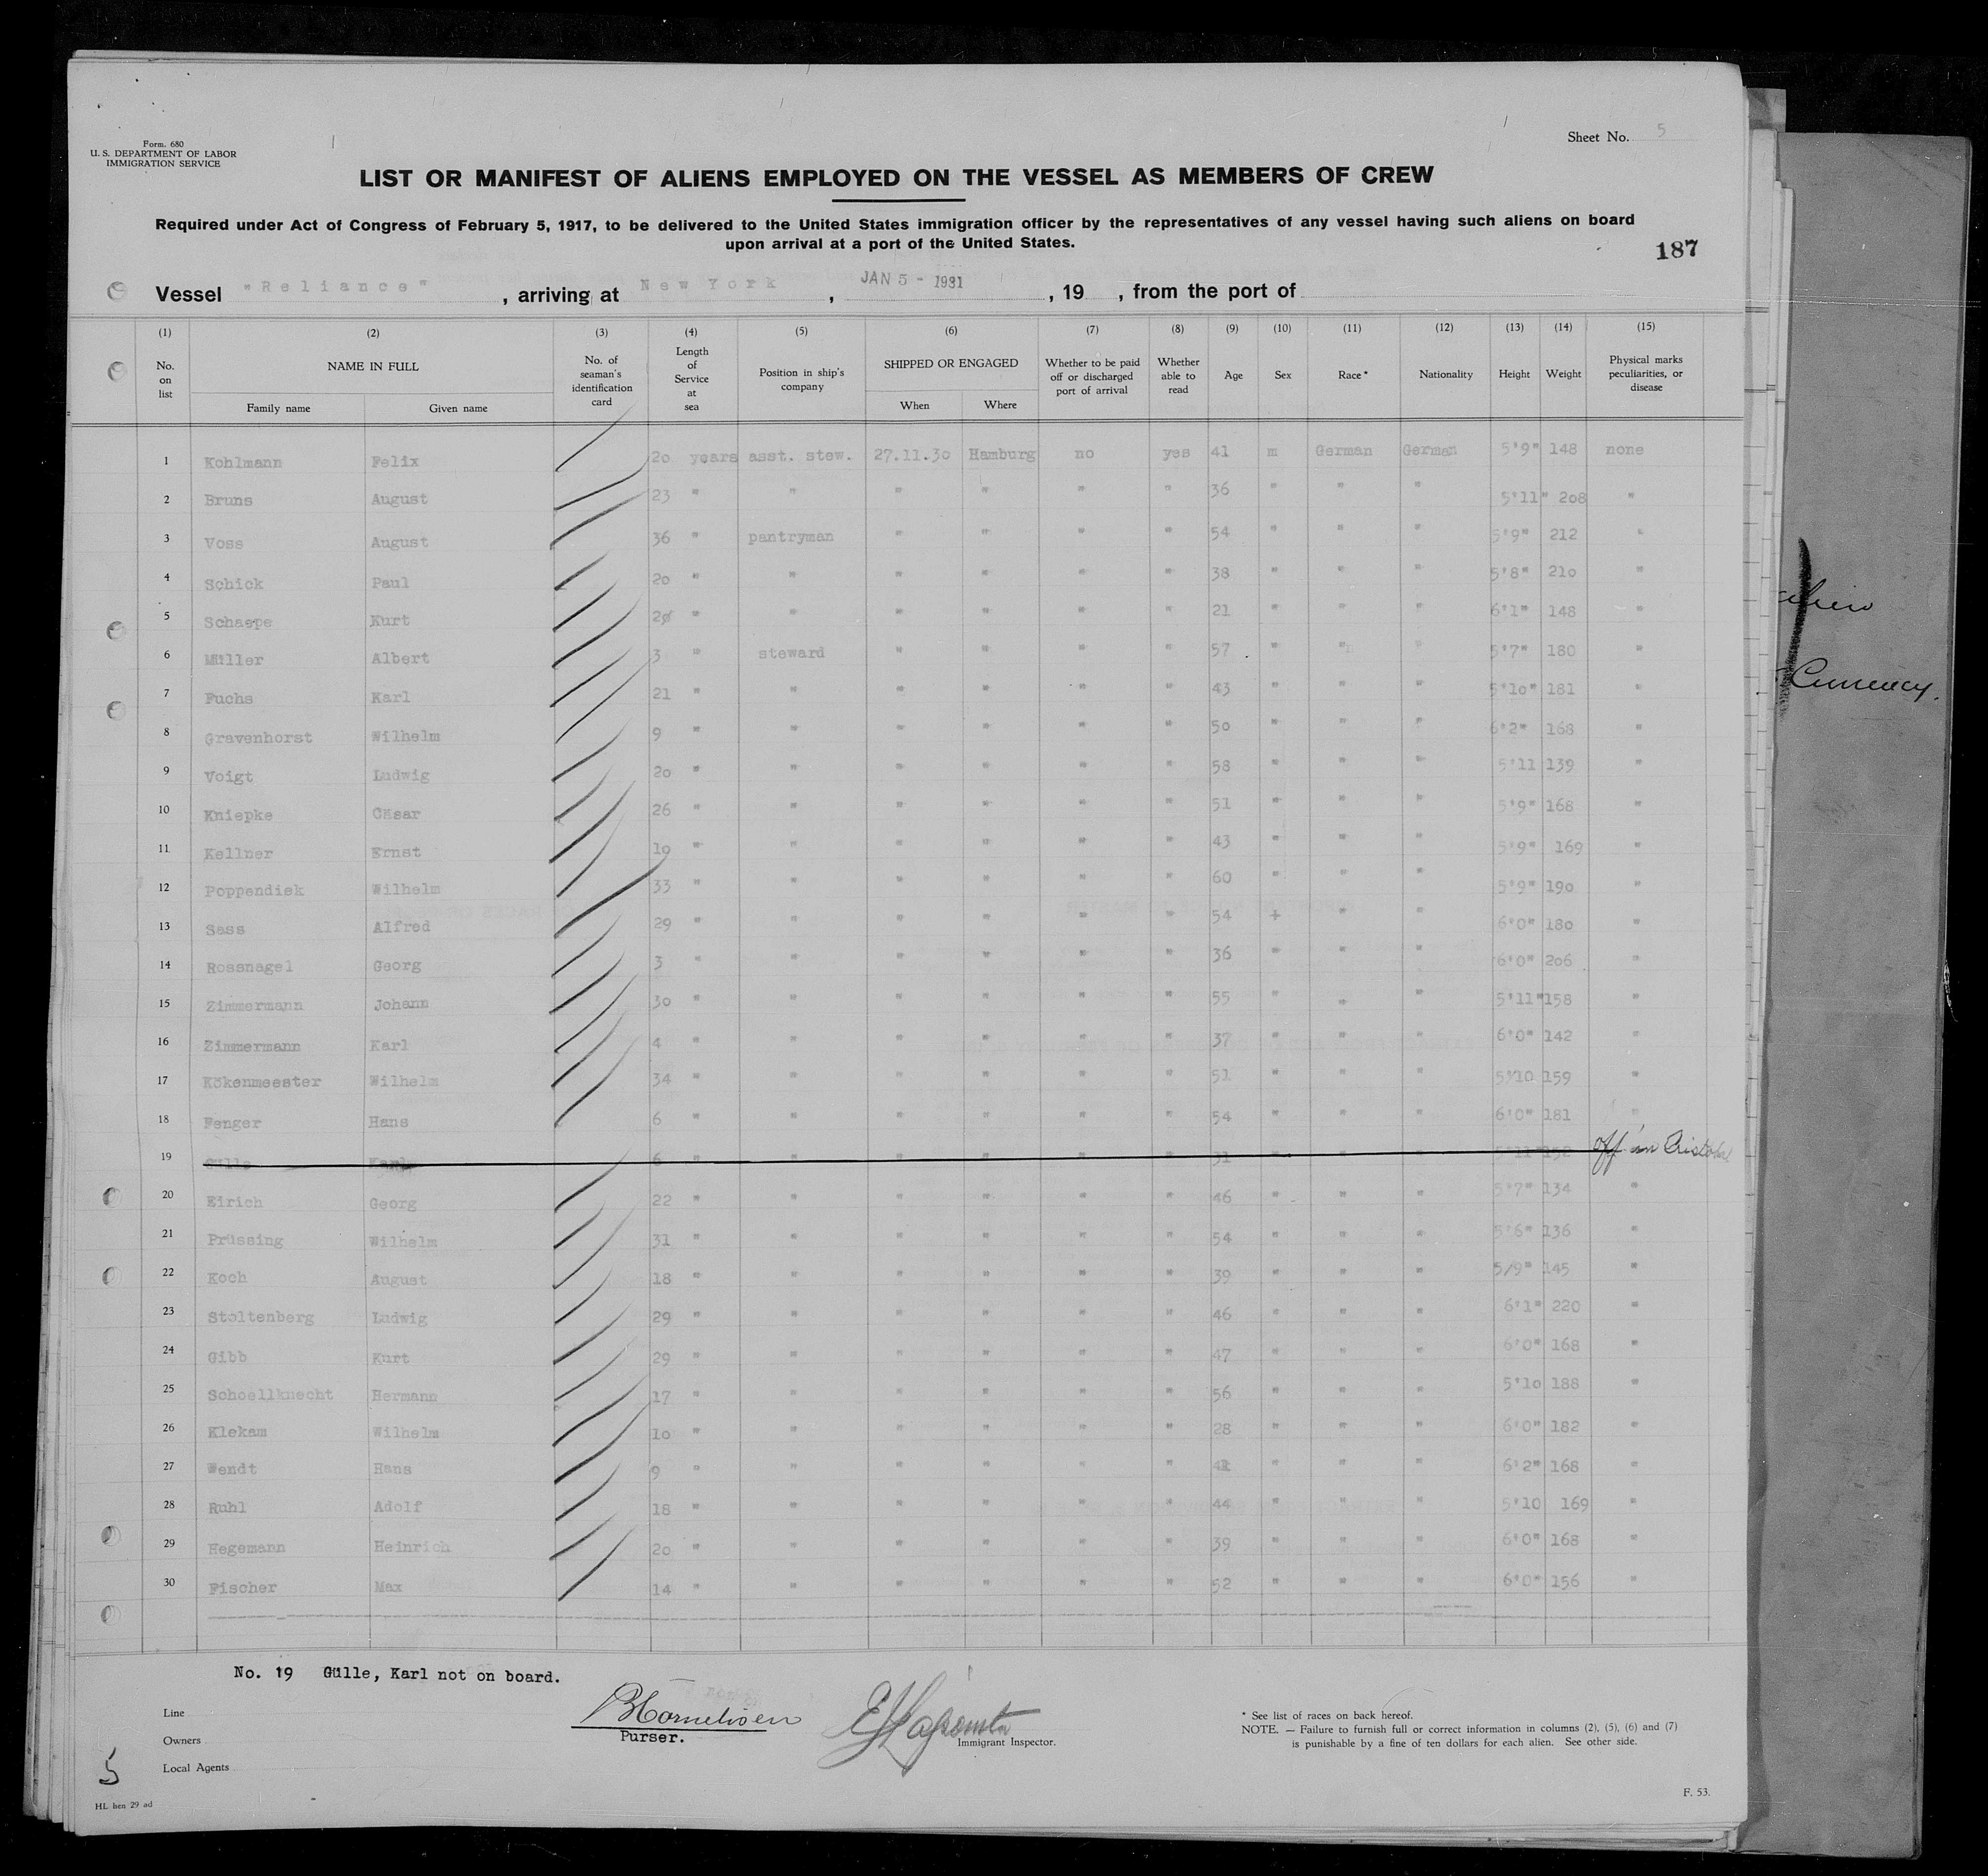 Form. 680
U. S. DEPARTMENT OF LABOR
IMMIGRATION SERVICE
Sheet No. 5
LIST OR MANIFEST OF ALIENS EMPLOYED ON THE VESSEL AS MEMBERS OF CREW
Required under Act of Congress of February 5, 1917, to be delivered to the United States immigration officer by the representatives of any vessel having such aliens on board
upon arrival at a port of the United States.
187
Vessel "Reliance", arriving at New York, JAN 5 - 1931, 19 , from the port of
(1) (2) (3) (4) (5) (6) (7) (8) (9) (10) (11) (12) (13) (14) (15)
No. on list NAME IN FULL Family name Given name No. of seaman's identification card Length of Service at sea Position in ship's company SHIPPED OR ENGAGED When Where Whether to be paid off or discharged port of arrival Whether able to read Age Sex Race* Nationality Height Weight Physical marks peculiarities, or disease
1 Kohlmann Felix 20 years asst. stew. 27.11.30 Hamburg no yes 41 m German German 5'9" 148 none
2 Bruns August 23 " " " " " " 36 " " " 5'11" 208 "
3 Voss August 36 " pantryman " " " " 54 " " " 5'9" 212 "
4 Schick Paul 20 " " " " " " 38 " " " 5'8" 210 "
5 Schaepe Kurt " " " " " " 21 " " " 6'1" 148 "
6 Müller Albert 3 " steward " " " " 57 " " " 5'7" 180 "
7 Fuchs Karl 21 " " " " " " 43 " " " 5'10" 181 "
8 Gravenhorst Wilhelm 9 " " " " " " 50 " " " 6'2" 168 "
9 Voigt Ludwig 20 " " " " " " 58 " " " 5'11 139 "
10 Kniepke Cäsar 26 " " " " " " 51 " " " 5'9" 168 "
11 Kellner Ernst 10 " " " " " " 43 " " " 5'9" 169 "
12 Poppendiek Wilhelm 33 " " " " " " 60 " " " 5'9" 190 "
13 Sass Alfred 29 " " " " " " 54 + " " 6'0" 180 "
14 Rossnagel Georg 3 " " " " " " 36 " " " 6'0" 206 "
15 Zimmermann Johann 30 " " " " " " 55 " " " 5'11" 158 "
16 Zimmermann Karl 4 " " " " " " 37 " " " 6'0" 142 "
17 Kökenmeester Wilhelm 34 " " " " " " 51 " " " 5'10 159 "
18 Fenger Hans 6 " " " " " " 54 " " " 6'0" 181 "
19 Gülle Karl 6 " " " " " " 31 " " " 5'11" 152 off in Cristobal
20 Eirich Georg 22 " " " " " " 46 " " " 5'7" 134 "
21 Prüssing Wilhelm 31 " " " " " " 54 " " " 5'6" 136 "
22 Koch August 18 " " " " " " 39 " " " 5/9" 145 "
23 Stoltenberg Ludwig 29 " " " " " " 46 " " " 6'1" 220 "
24 Gibb Kurt 29 " " " " " " 47 " " " 6'0" 168 "
25 Schoellknecht Hermann 17 " " " " " " 56 " " " 5'10 188 "
26 Klekam Wilhelm 10 " " " " " " 28 " " " 6'0" 182 "
27 Wendt Hans 9 " " " " " " " " " 6'2" 168 "
28 Ruhl Adolf 18 " " " " " " 44 " " " 5'10 169 "
29 Hegemann Heinrich 20 " " " " " " 39 " " " 6'0" 168 "
30 Fischer Max 14 " " " " " " 52 " " " 6'0" 156 "
No. 19 Gülle, Karl not on board.
Line
Owners
Local Agents
Purser.
Immigrant Inspector.
* See list of races on back hereof.
NOTE. — Failure to furnish full or correct information in columns (2), (5), (6) and (7)
is punishable by a fine of ten dollars for each alien. See other side.
5
HL hen 29 ad
F. 53.
Currency.